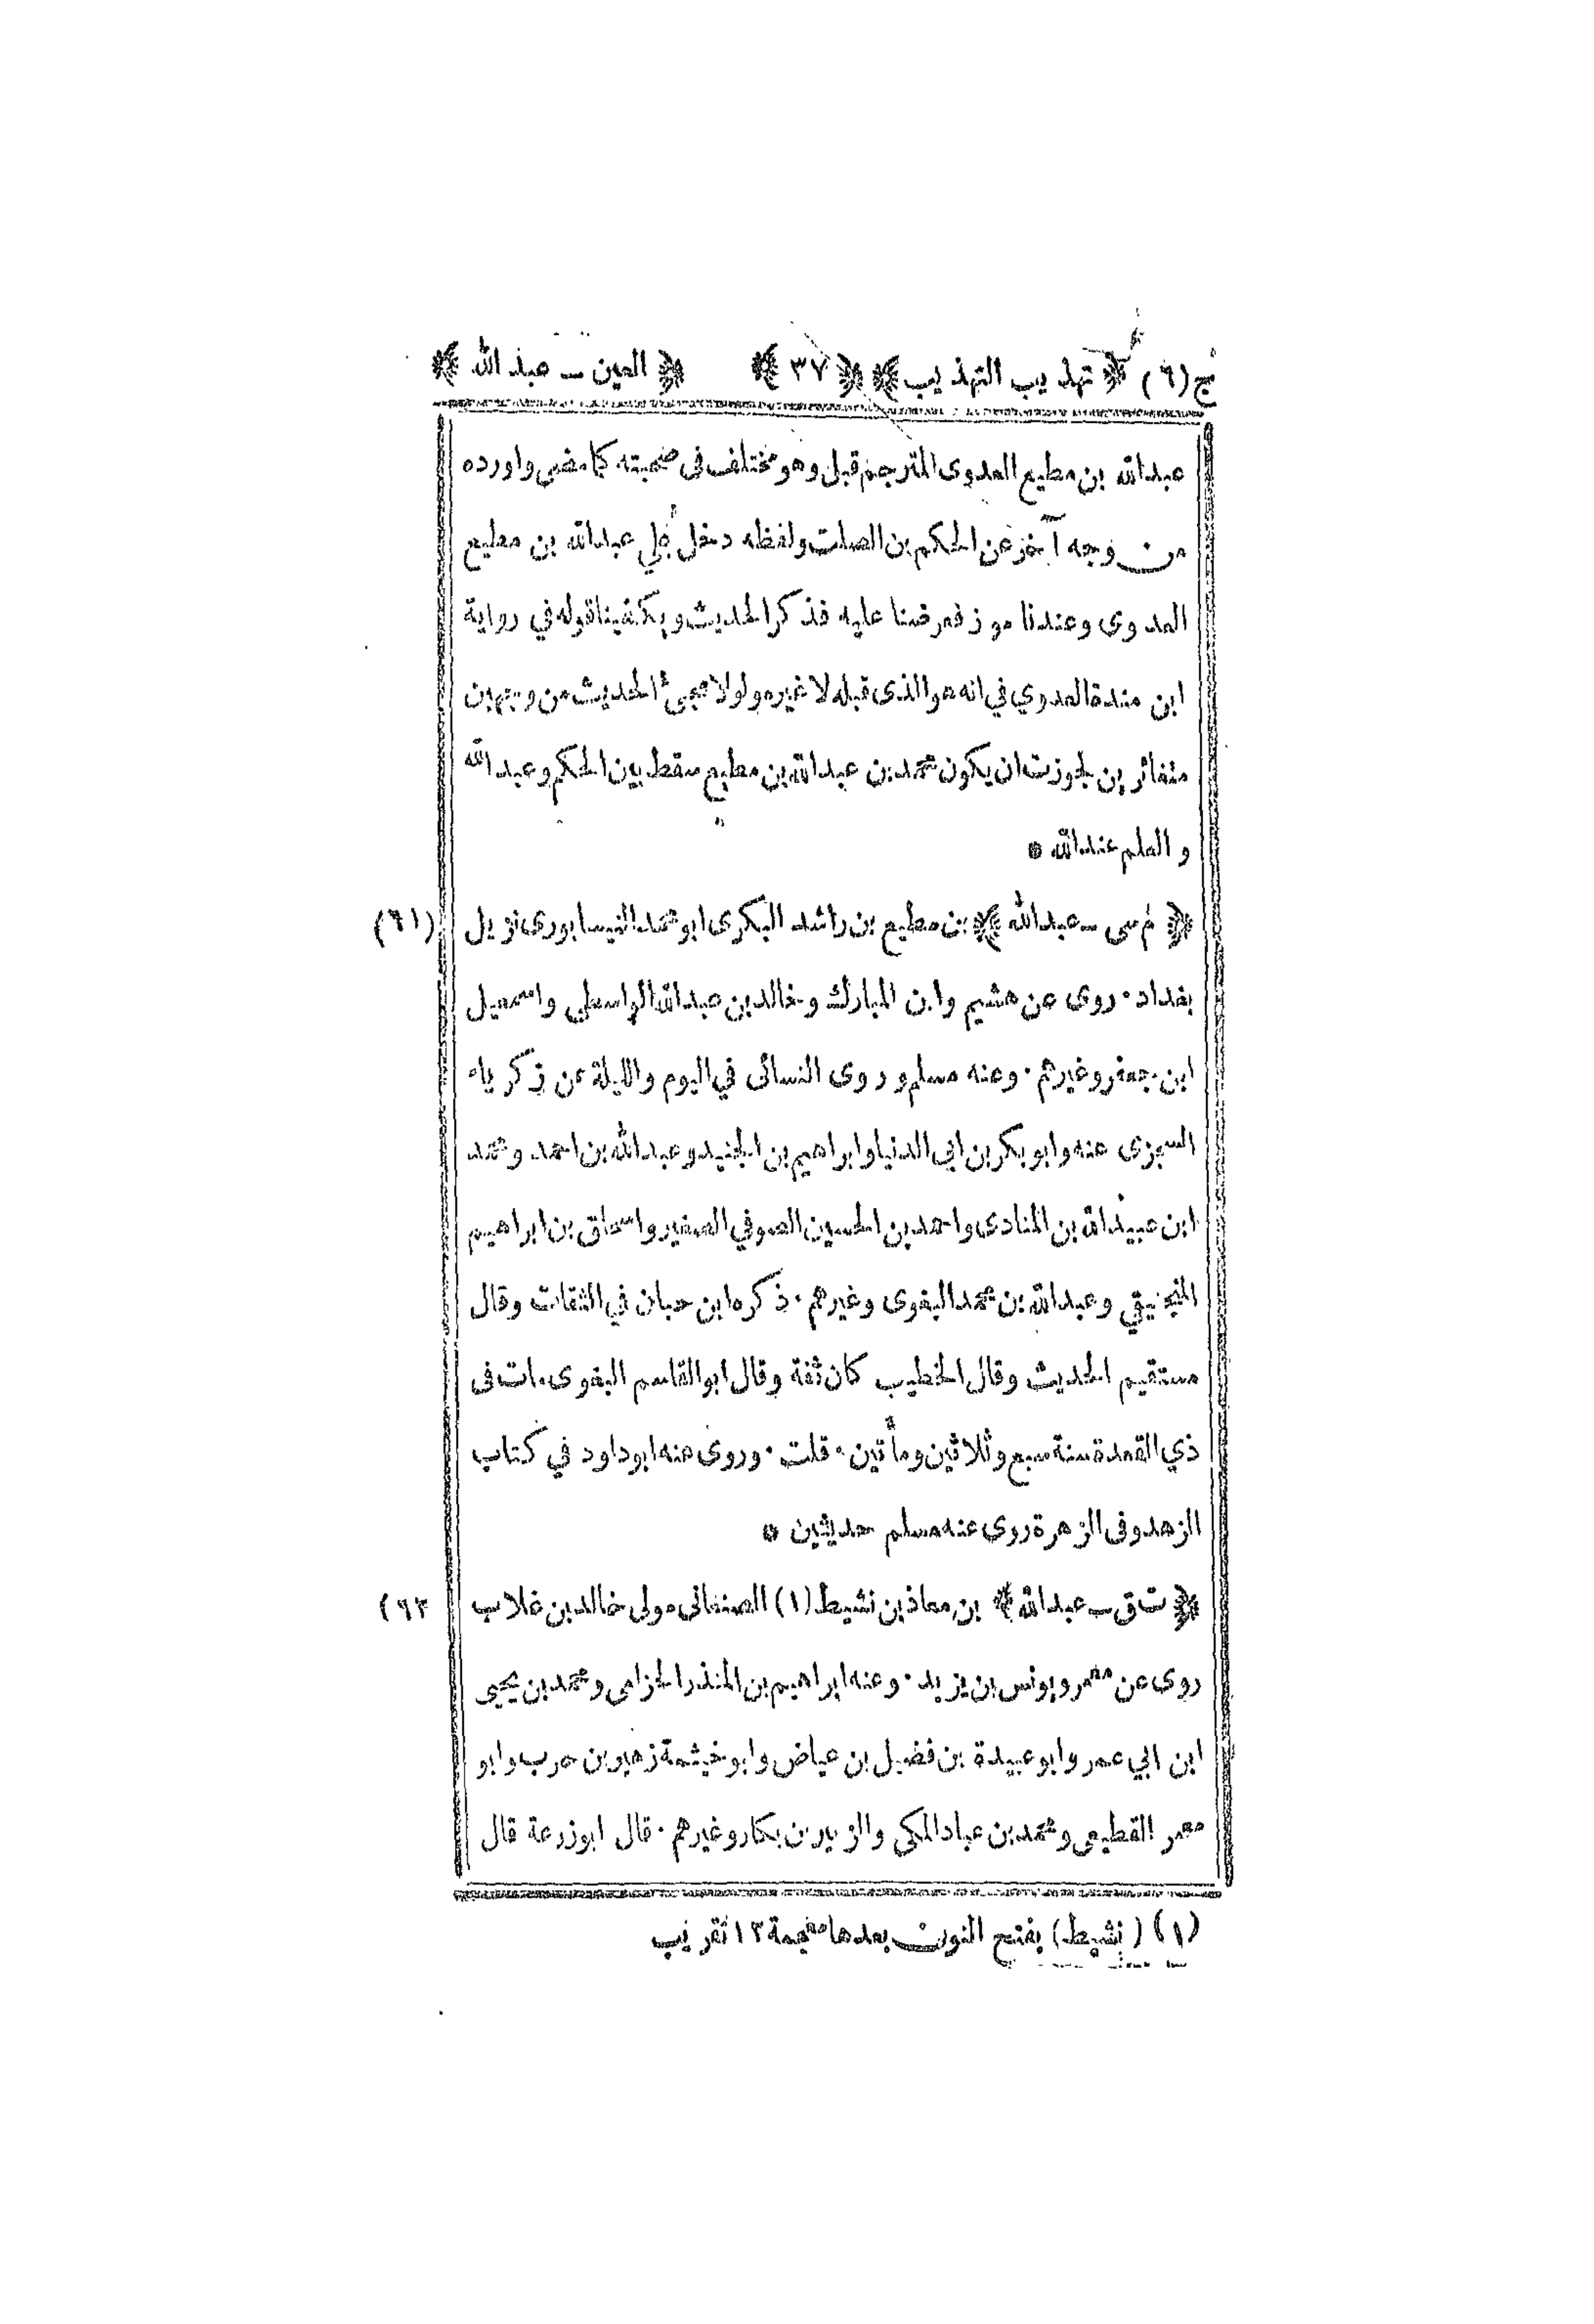 ج (٦) ﴿ تهذيب التهذيب ﴾ ﴿ ٣٧ ﴾ ﴿ العين – عبد الله ﴾
عبدالله بن مطيع العدوى المترجم قبل وهو مختلف فى صحبته كما مضى واورده
من وجه آخر عن الحكم بن الصلت ولفظه دخل علي عبدالله بن مطيع
العدوى وعندنا موز فعرضنا عليه فذكر الحديث ويكفينا قوله في رواية
ابن مندة العدوي في انه هو الذى قبله لا غيره ولولا مجيئ الحديث من وجهين
متغائرين لجوزت ان يكون محمد بن عبدالله بن مطيع سقط بين الحكم وعبدالله
و العلم عندالله *
﴿ م سى – عبدالله ﴾ بن مطيع بن راشد البكرى ابو محمد النيسابورى نزيل (٦١)
بغداد · روى عن هشيم وابن المبارك وخالد بن عبدالله الواسطي واسمعيل
ابن جعفر وغيرهم · وعنه مسلم وروى النسائى في اليوم والليلة عن زكرياء
السجزى عنه وابو بكر بن ابي الدنيا وابراهيم بن الجنيد وعبدالله بن احمد ومحمد
ابن عبيدالله بن المنادى واحمد بن الحسين الصوفي الصغير واسحاق بن ابراهيم
المنجنيقي وعبدالله بن محمد البغوى وغيرهم · ذكره ابن حبان في الثقات وقال
مستقيم الحديث وقال الخطيب كان ثقة وقال ابو القاسم البغوى مات فى
ذي القعدة سنة سبع وثلاثين ومأتين · قلت · وروى عنه ابو داود في كتاب
الزهد وفى الزهرة روى عنه مسلم حديثين *
﴿ ت ق – عبدالله ﴾ بن معاذ بن نشيط (١) الصنعانى مولى خالد بن غلاب (٦٢
روى عن معمر ويونس بن يزيد · وعنه ابراهيم بن المنذر الحزامى ومحمد بن يحيى
ابن ابي عمر وابو عبيدة بن فضيل بن عياض وابو خيثمة زهير بن حرب وابو
معمر القطيعى ومحمد بن عباد المكى والزبير بن بكار وغيرهم · قال ابو زرعة قال
(١) ( نشيط ) بفتح النون بعدها معجمة ١٢ تقريب